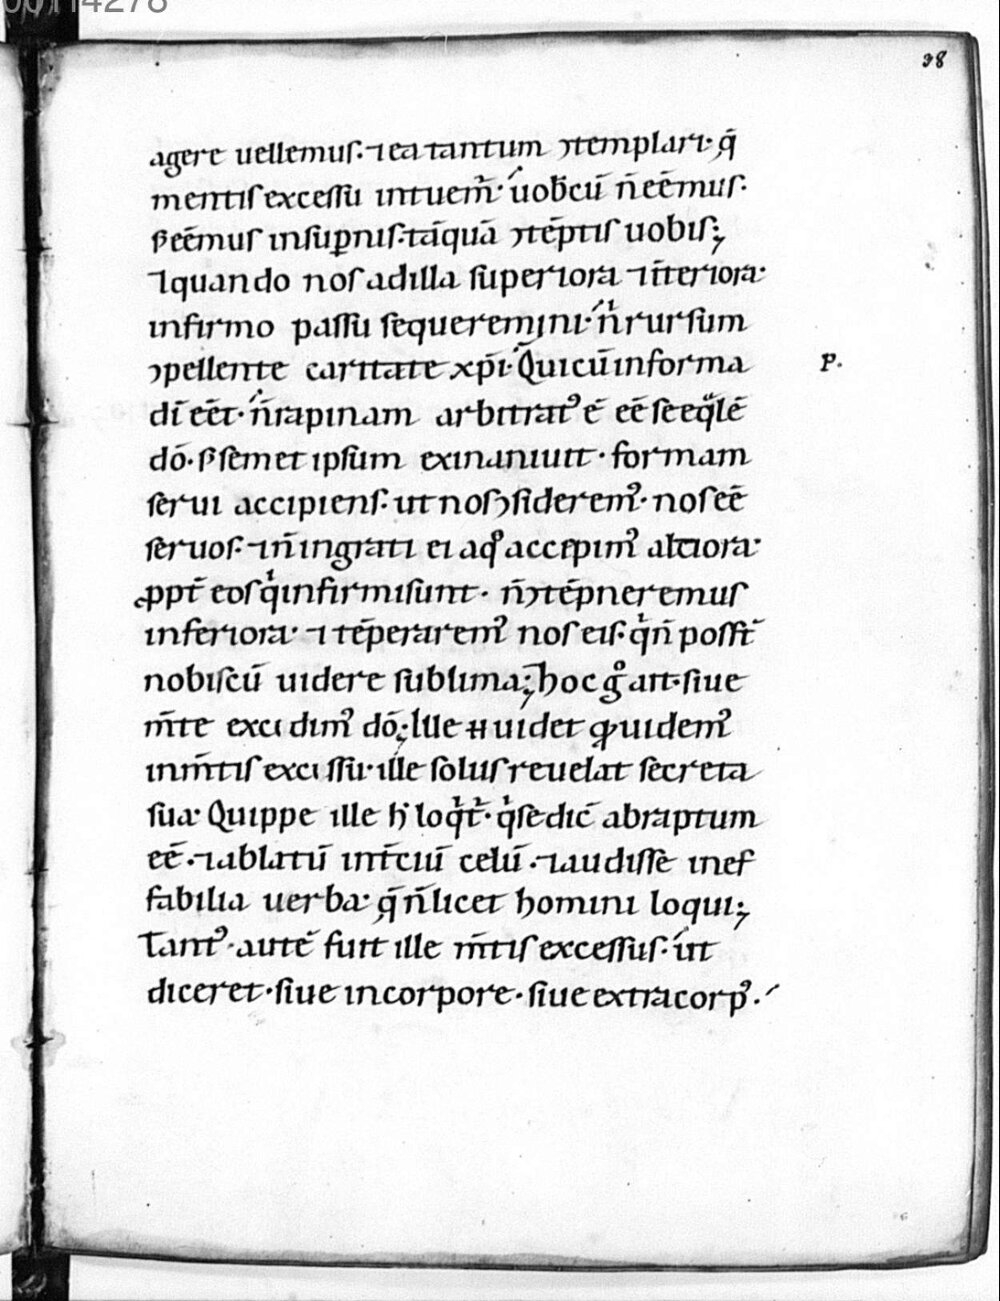 00114278
38
agere uellemuſ·⁊ea tantum ꝯtemplari· q̄
mentiſ exceſſu intuem̄· uob̄cū n̄ eēmuſ·
ẜ eēmuſ inſuꝑniſ·tāquā ꝯtēptiſ uobiſ;
⁊quando noſ adilla ſuperiora ⁊īteriora·
infirmo paſſu ſequeremini· n̄ rurſum
ꝯpellente caritate xp̄i· Quicū informa
dī eēt· n̄ rapinam arbitratꝰ ē eē ſe eq̄lē
dō· ẜ ſemet ipſum exinaniuit· formam
ſerui accipienſ· ut noſ ꝯſideremꝰ· noſ eē
ſeruoſ·⁊ n̄ ingrati ei aq̊ accepimꝰ altiora·
ꝓpt̄ eoſ qͥ infirmi ſunt· n̄ ꝯtēpneremuſ
inferiora· ⁊ tēperaremꝰ noſ eiſ· qͥ n̄ poſſt̄
nobiſcū uidere ſublima; hoc g̊ ait·ſiue
m̄te excidimꝰ dō; Ille ħ uidet ꝙ uidemꝰ
inm̄tiſ exceſſu· ille ſoluſ reuelat ſecreta
ſua· Quippe ille h̄ loqͥtͥ· qͥ ſe dic̄ abraptum
eē·⁊ablatū int̄ciū celū·⁊audiſſe inef
fabilia uerba· q̄ n̄ licet homini loqui;
Tantꝰ·autē fuit ille m̄tiſ exceſſuſ· ut
diceret·ſiue incorpore·ſiue extracorpꝰ·
P.